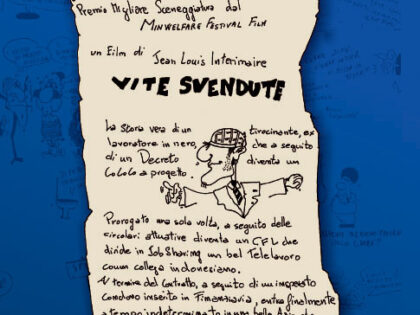 Premio Migliore Sceneggiatura dal
MINWELFARE FESTIVAL FILM
un Film di Jean Louis Interimaire
VITE SVENDUTE
La storia vera di un tirocinante, ex
lavoratore in nero, che a seguito
di un Decreto diventa un
CoCoCo a progetto.
Prorogato una sola volta, a seguito delle
circolari attuative diventa un CFL che
divide in Job Sharing un bel Telelavoro
con un collega indonesiano.
Al termine del Contratto, a seguito di un insperato
Condono inserito in Finanziaria, entra finalmente
a tempo indeterminato in una bella